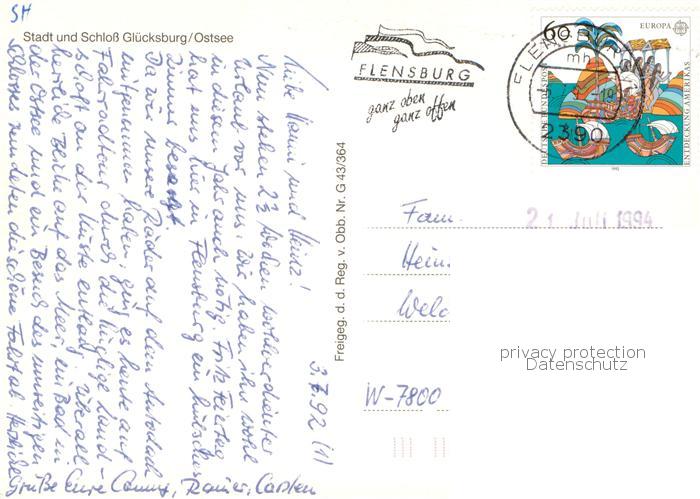 SH
Stadt und Schloß Glücksburg/Ostsee
3.7.92 (1)
Liebe und Heinz!
Nun stehen 2½ Wochen wohlverdienter
Urlaub vor uns. Wir haben ihn wohl
in diesem Jahr auch nötig. Fritz Feiertag
hat uns hier in Flensburg ein hübsches
Zimmer besorgt.
Da wir unsere Räder auf dem Autodach
mitgenommen haben, ging es heute auf
Fahrradtour durch die hüglige Land-
schaft an der Küste entlang. Überall
herrliche Blicke auf das Meer, ein Bad in
der Ostsee und ein Besuch des
Schlosses rundeten die schöne Fahrt ab. Herzliche
Grüße Eure Conny, Rainer, Carsten
Freigeg. d. d. Reg. v. Obb. Nr. G 43/364
FLENSBURG
ganz oben
ganz offen
FLENSB
mh
2390
60
EUROPA
DEUTSCHE BUNDESPOST
ENTDECKUNG AMERIKAS
1992
Fam.
21. Juli 1994
Hein.
W-7800
privacy protection
Datenschutz